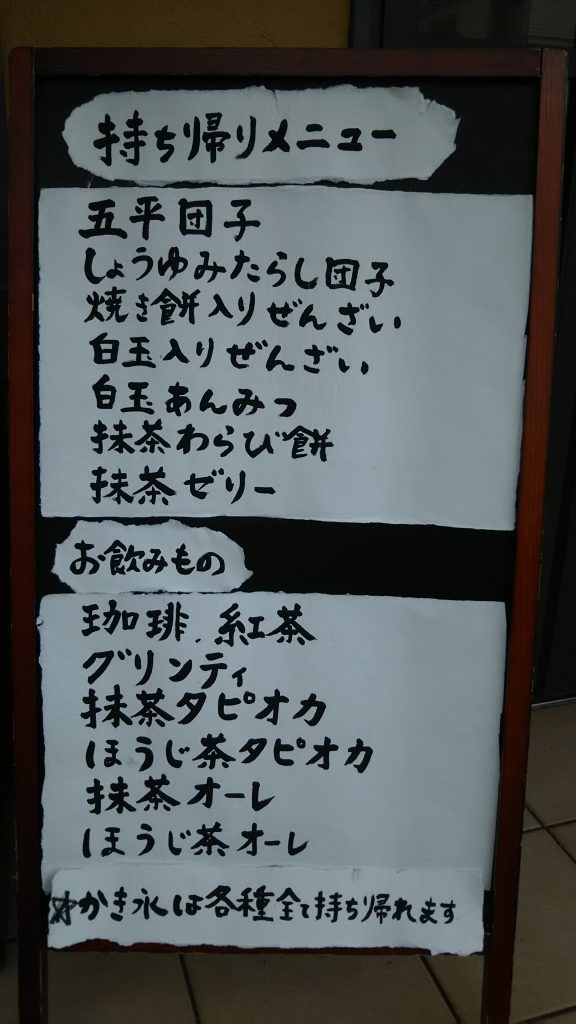 持ち帰りメニュー
五平団子
しょうゆみたらし団子
焼き餅入りぜんざい
白玉入りぜんざい
白玉あんみつ
抹茶わらび餅
抹茶ゼリー
お飲みもの
珈琲.紅茶
グリンティ
抹茶タピオカ
ほうじ茶タピオカ
抹茶オーレ
ほうじ茶オーレ
☆かき氷は各種全て持ち帰れます